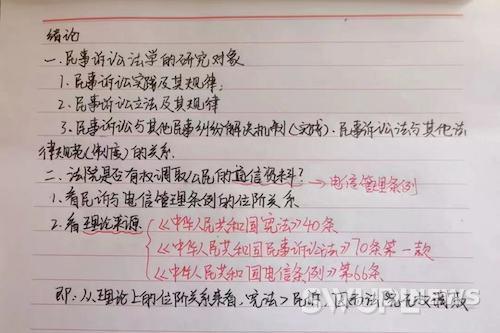 绪论
一.民事诉讼法学的研究对象
1.民事诉讼实践及其规律;
2.民事诉讼立法及其规律
3.民事诉讼与其他民事纠纷解决机制(实践).民事诉讼法与其他法
律规范(制度)的关系.
二.法院是否有权调取公民的通信资料? → 电信管理条例
1.看民诉与电信管理条例的位阶关系
2.看理论来源
《中华人民共和国宪法》40条
《中华人民共和国民事诉讼法》70条第一款
《中华人民共和国电信条例》第66条
即:从理论上的位阶关系来看,宪法>民诉,因而法院无权调取
SWUPL NEWS